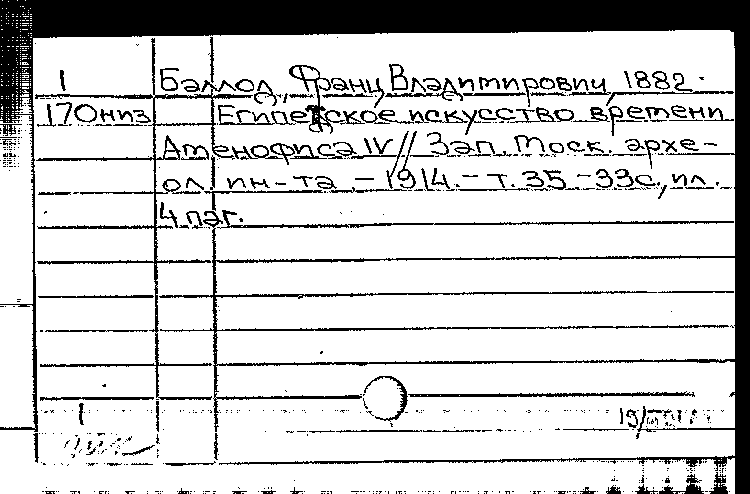 1 Баллод, Франц Владимирович, 1882.
170низ Египетское искусство времени
Аменофиса IV // Зап. Моск. архе-
ол. ин-та. - 1914. - т. 35. - 33с, ил.
4 паг.
1